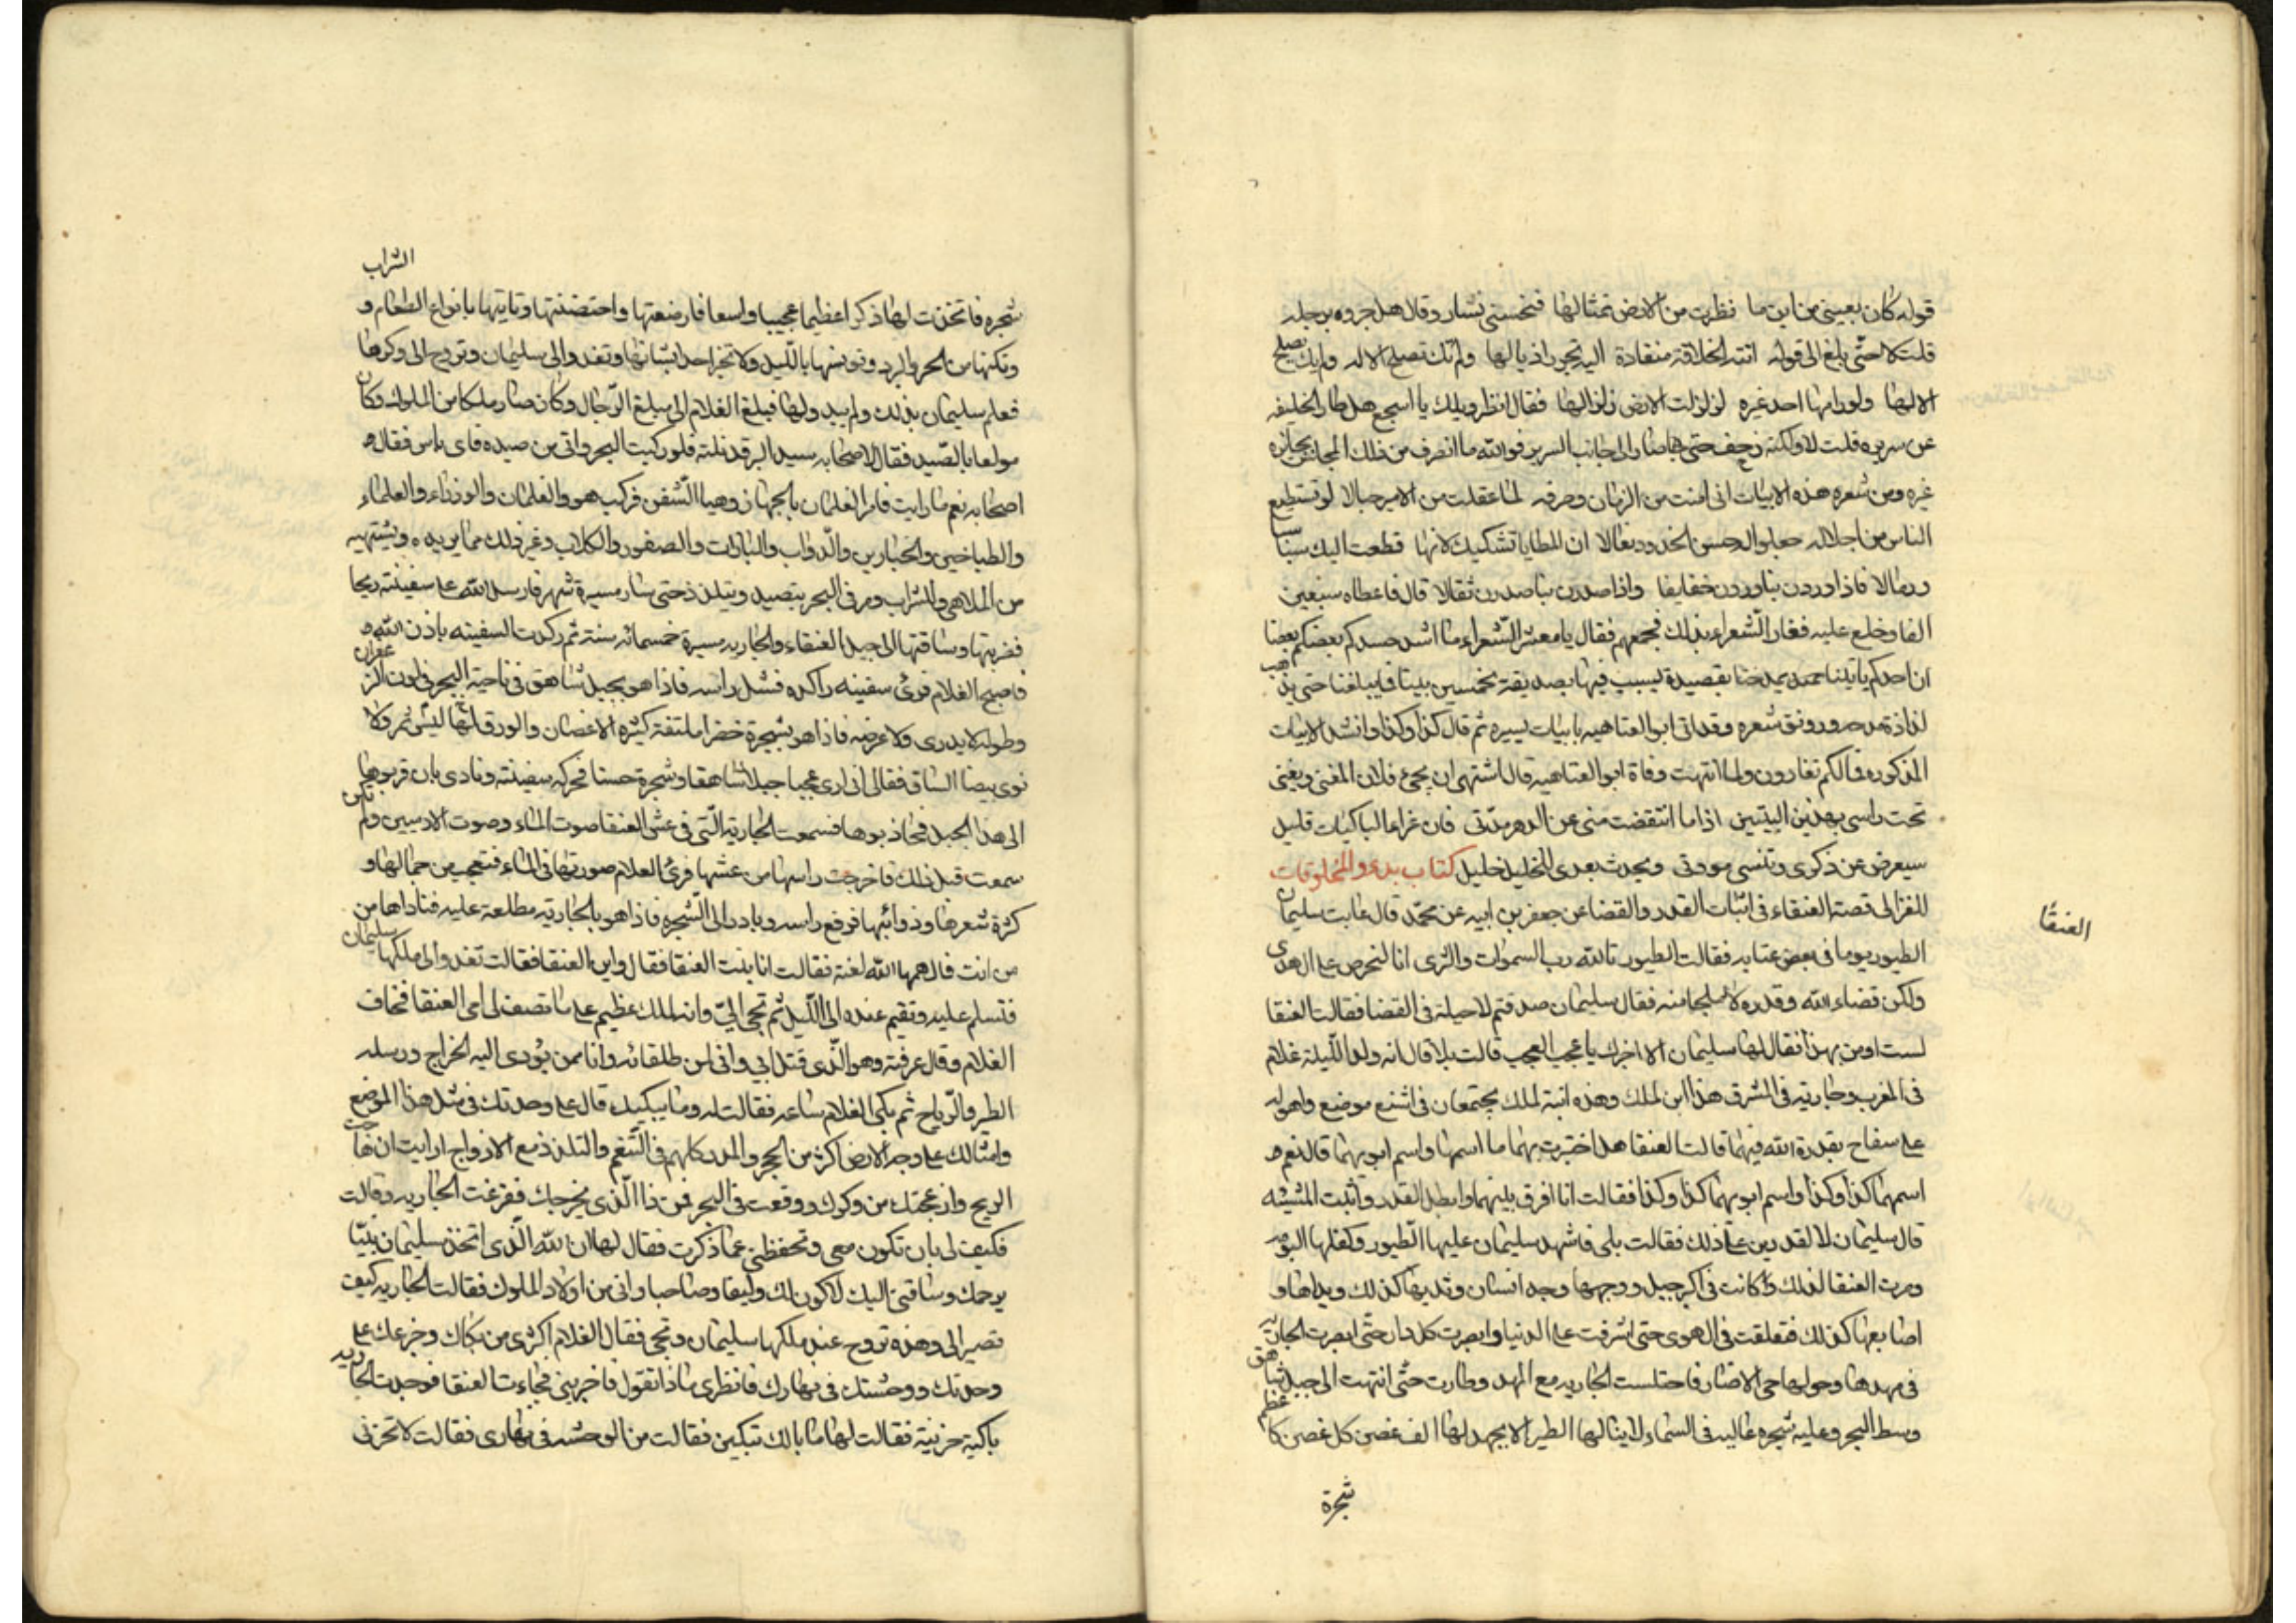 قوله كان بعيني من اين ما نظرت من الارض تمثالها فنخسني بشار وقال هل جروه برجله
قلت لا حتى بلغ الى قوله اتته الخلافة منقادة اليه تجرر اذيالها ولم تك تصلح الا له ولم يك يصلح
الا لها ولو رامها احد غيره لزلزلت الارض زلزالها فقال انظر ويلك يا اشجع هل طار الخليفه
عن سريره قلت لا ولكنه زحف حتى صار الى جانب السرير فوالله ما انصرف من ذلك المجلس بجائزه
غيره ومن شعره هذه الابيات اني امنت من الزمان وصرفه لما علقت من الامير حبالا لو تستطيع
الناس من اجلاله جعلوا له حسن الخدود نعالا ان المطايا تشتكيك لانها قطعت اليك سباسبا
ورمالا فاذا وردن بنا وردن خفايفا واذا صدرن بنا صدرن ثقالا قال فاعطاه سبعين
الفا وخلع عليه فغار الشعراء بذلك فجمعهم فقال يا معشر الشعراء ما اشد حسدكم بعضكم بعضا
ان احدكم ياتينا يمدحنا بقصيدة يشبب فيها بصديقته بخمسين بيتا فما يبلغنا حتى يذهب
لذاذة مدحه ورونق شعره وقد اتى ابو العتاهيه بابيات يسيره ثم قال كذا وكذا وانشد الابيات
المذكوره فما لكم تغارون ولما انتهت وفاة ابو العتاهيه قال اشتهى ان يجئ فلان المغني ويغني
تحت راسي بهذين البيتين اذا ما انقضت مني عن الدهر مدتي فان غرا ما الباكيات قليل
سيعرض عن ذكرى وتنسى مودتي ويحدث بعدى للخليل خليل كتاب بدو المخلوقات
العنقا
للغزالى قصة العنقاء في اثبات القدر والقضا عن جعفر بن ابيه عن محمد قال عاتبت سليمان
الطيور يوما في بعض عتابه فقالت الطيور تالله رب السموات والثرى انا لنحرص على الهدى
ولكن قضاء الله وقدره لا ملجا منه فقال سليمان صدقتم لا حيلة في القضا فقالت العنقا
لست اومن بهذا فقال لها سليمان الا اخبرك يا عجب العجب قالت بلا قال انه ولد الليلة غلام
في المغرب وجاريه في المشرق هذا ابن لملك وهذه ابنة لملك يجتمعان في اشنع موضع واهوله
على سفاح بقدرة الله فيهما قالت العنقا هل اخبرت بهما ما اسمهما واسم ابويهما قال نعم
اسمهما كذا وكذا واسم ابويهما كذا وكذا فقالت انا افرق بينهما وابطل القدر واثبت المشيئه
قال سليمان لا تقدرين على ذلك فقالت بلى فاشهد سليمان عليها الطيور وكفلها البومه
ومرت العنقا لذلك وكانت في اكبر جبل ووجهها وجه انسان وثديها كذلك ويداها و
اصابعها كذلك فتعلقت في الهوى حتى اشرفت على الدنيا وابصرت كل دار حتى ابصرت الجاريه
في مهدها وحولها فاختلست الجاريه مع المهد وطارت حتى انتهت الى جبل شاهق
وسط البحر وعليه شجره عاليه في السماء لا ينالها الطير الا بجهد لها الف غصن كل غصن كاعظم
شجرة
شجره فاتخذت لها وكرا عظيما عجيبا واسعا فارضعتها واحتضنتها وتاتيها بانواع الطعام و الشراب
وتكنها من الحر والبرد وتونسها بالليل ولا تخبر احدا بشانها وتغدو الى سليمان وتروح الى وكرها
فعلم سليمان بذلك ولم يبد ولها فبلغ الغلام الى مبلغ الرجال وكان صار ملكا من الملوك وكان
مولعا بالصيد فقال لاصحابه سيد البر قد نلته فلو ركبت البحر واتى من صيده فاى باس فقال
اصحابه نعم ما رايت فامر الغلمان بالجهاز وهيا السفن فركب هو والغلمان والوزراء والعلماء
والطباخين والخبازين والدواب والبازات والصقور والكلاب وغير ذلك مما يريده ويشتهيه
من الملاهي والشراب ومر في البحر يتصيد ويتلذذ حتى سار مسيرة شهر فارسل الله على سفينته ريحا
فضربتها وساقتها الى جبل العنقاء والجاريه مسيرة خمسمائه سنة ثم ركدت السفينه باذن الله
فاصبح الغلام فرئ سفينه راكده فشل راسه فاذا هو بجبل شاهق في ناحية البحر في لون الزعفران
وطوله لا يدرى ولا عرضه فاذا هو بشجرة خضرا ملتفة كثيره الاغصان والورق ليس ثمر ولا
نوى بيضا الساق فقال اني ارى عجبا جبلا شاهقا وشجرة حسنا فحركه سفينته ونادى بان قربوها
الى هذا الجبل فجاذبوها فسمعت الجارية التي في عش العنقا صوت الماء وصوت الادميين ولم تكن
سمعت قبل ذلك فاخرجت راسها من عشها فرئ الغلام صورتها في الماء فتعجب من جمالها و
كثرة شعرها وذوائبها فرفع راسه وبادر الى الشجره فاذا هو بالجارية مطلعة عليه فناداها من
من انت فالهمها الله لغته فقالت انا بنت العنقا فقال واين العنقا فقالت تغدو الى ملكها سليمان
فتسلم عليه وتقيم عنده الى الليل ثم تجي الي وانه لملك عظيم على ما تصف لي امي العنقا فخاف
الغلام وقال عرفته وهو الذى قتل ابي واني لمن طلقائه وانا ممن يؤدى اليه الخراج ورسله
الطير والرياح ثم بكى الغلام ساعه فقالت له وما يبكيك قال على وحدتك في مثل هذا الموضع
وامثالك على وجه الارض اكثر من الحجر والمدر كلهم في التنعم والتلذذ مع الازواج ارايت ان هاجت
الريح وازعجتك من وكرك ووقعت في البحر فمن ذا الذى يخرجك ففزعت الجاريه وقالت
فكيف لي بان تكون معي وتحفظني عما ذكرت فقال لها ان الله الذى اتخذ سليمان نبيا
يرحمك وساقني اليك لاكون لك وليفا وصاحبا واني من اولاد الملوك فقالت الجاريه كيف
تصير الى وهذه تروح عند ملكها سليمان وتجى فقال الغلام اكثرى من بكاك وجزعك على
وحدتك ووحشتك في نهارك فانظرى ماذا تقول فاخبريني فجاءت العنقا فوجدت الجاريه
باكية حزينة فقالت لها ما بالك تبكين فقالت من الوحشه في نهارى فقالت لا تحزني